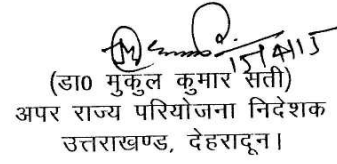 (डा० मुकुल कुमार सती)
अपर राज्य परियोजना निदेशक
उत्तराखण्ड, देहरादून।